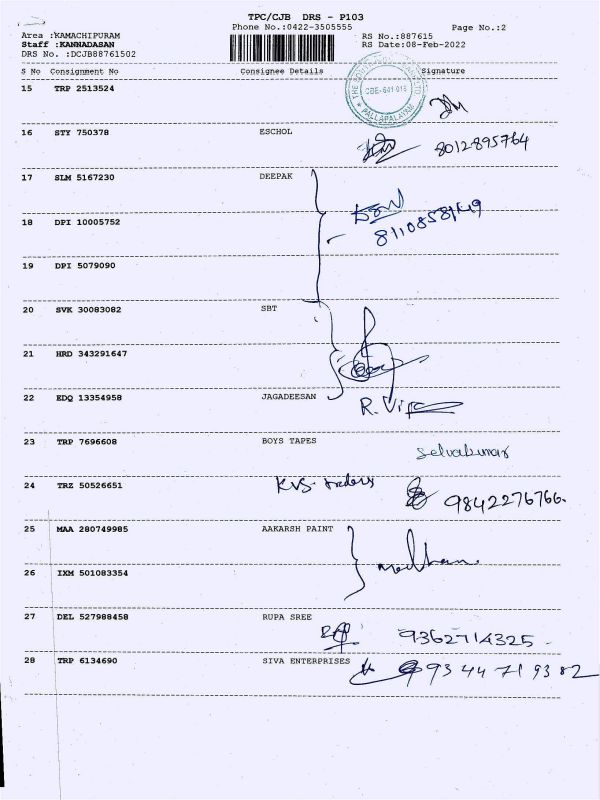 TPC/CJB DRS - P103
Phone No.:0422-3505555
Page No.:2
Area :KAMACHIPURAM
Staff :KANNADASAN
DRS No. :DCJB88761502
RS No.:887615
RS Date:08-Feb-2022
S No Consignment No Consignee Details Signature
15 TRP 2513524
CBE-641 016
PALLAPALAYAM
16 STY 750378 ESCHOL
8012895764
17 SLM 5167230 DEEPAK
18 DPI 10005752
19 DPI 5079090
20 SVK 30083082 SBT
21 HRD 343291647
22 EDQ 13354958 JAGADEESAN
23 TRP 7696608 BOYS TAPES
Selvakumar
24 TRZ 50526651 KVS-traders
9842276766.
25 MAA 280749985 AAKARSH PAINT
26 IXM 501083354
27 DEL 527988458 RUPA SREE
9362714325
28 TRP 6134690 SIVA ENTERPRISES 9344719382